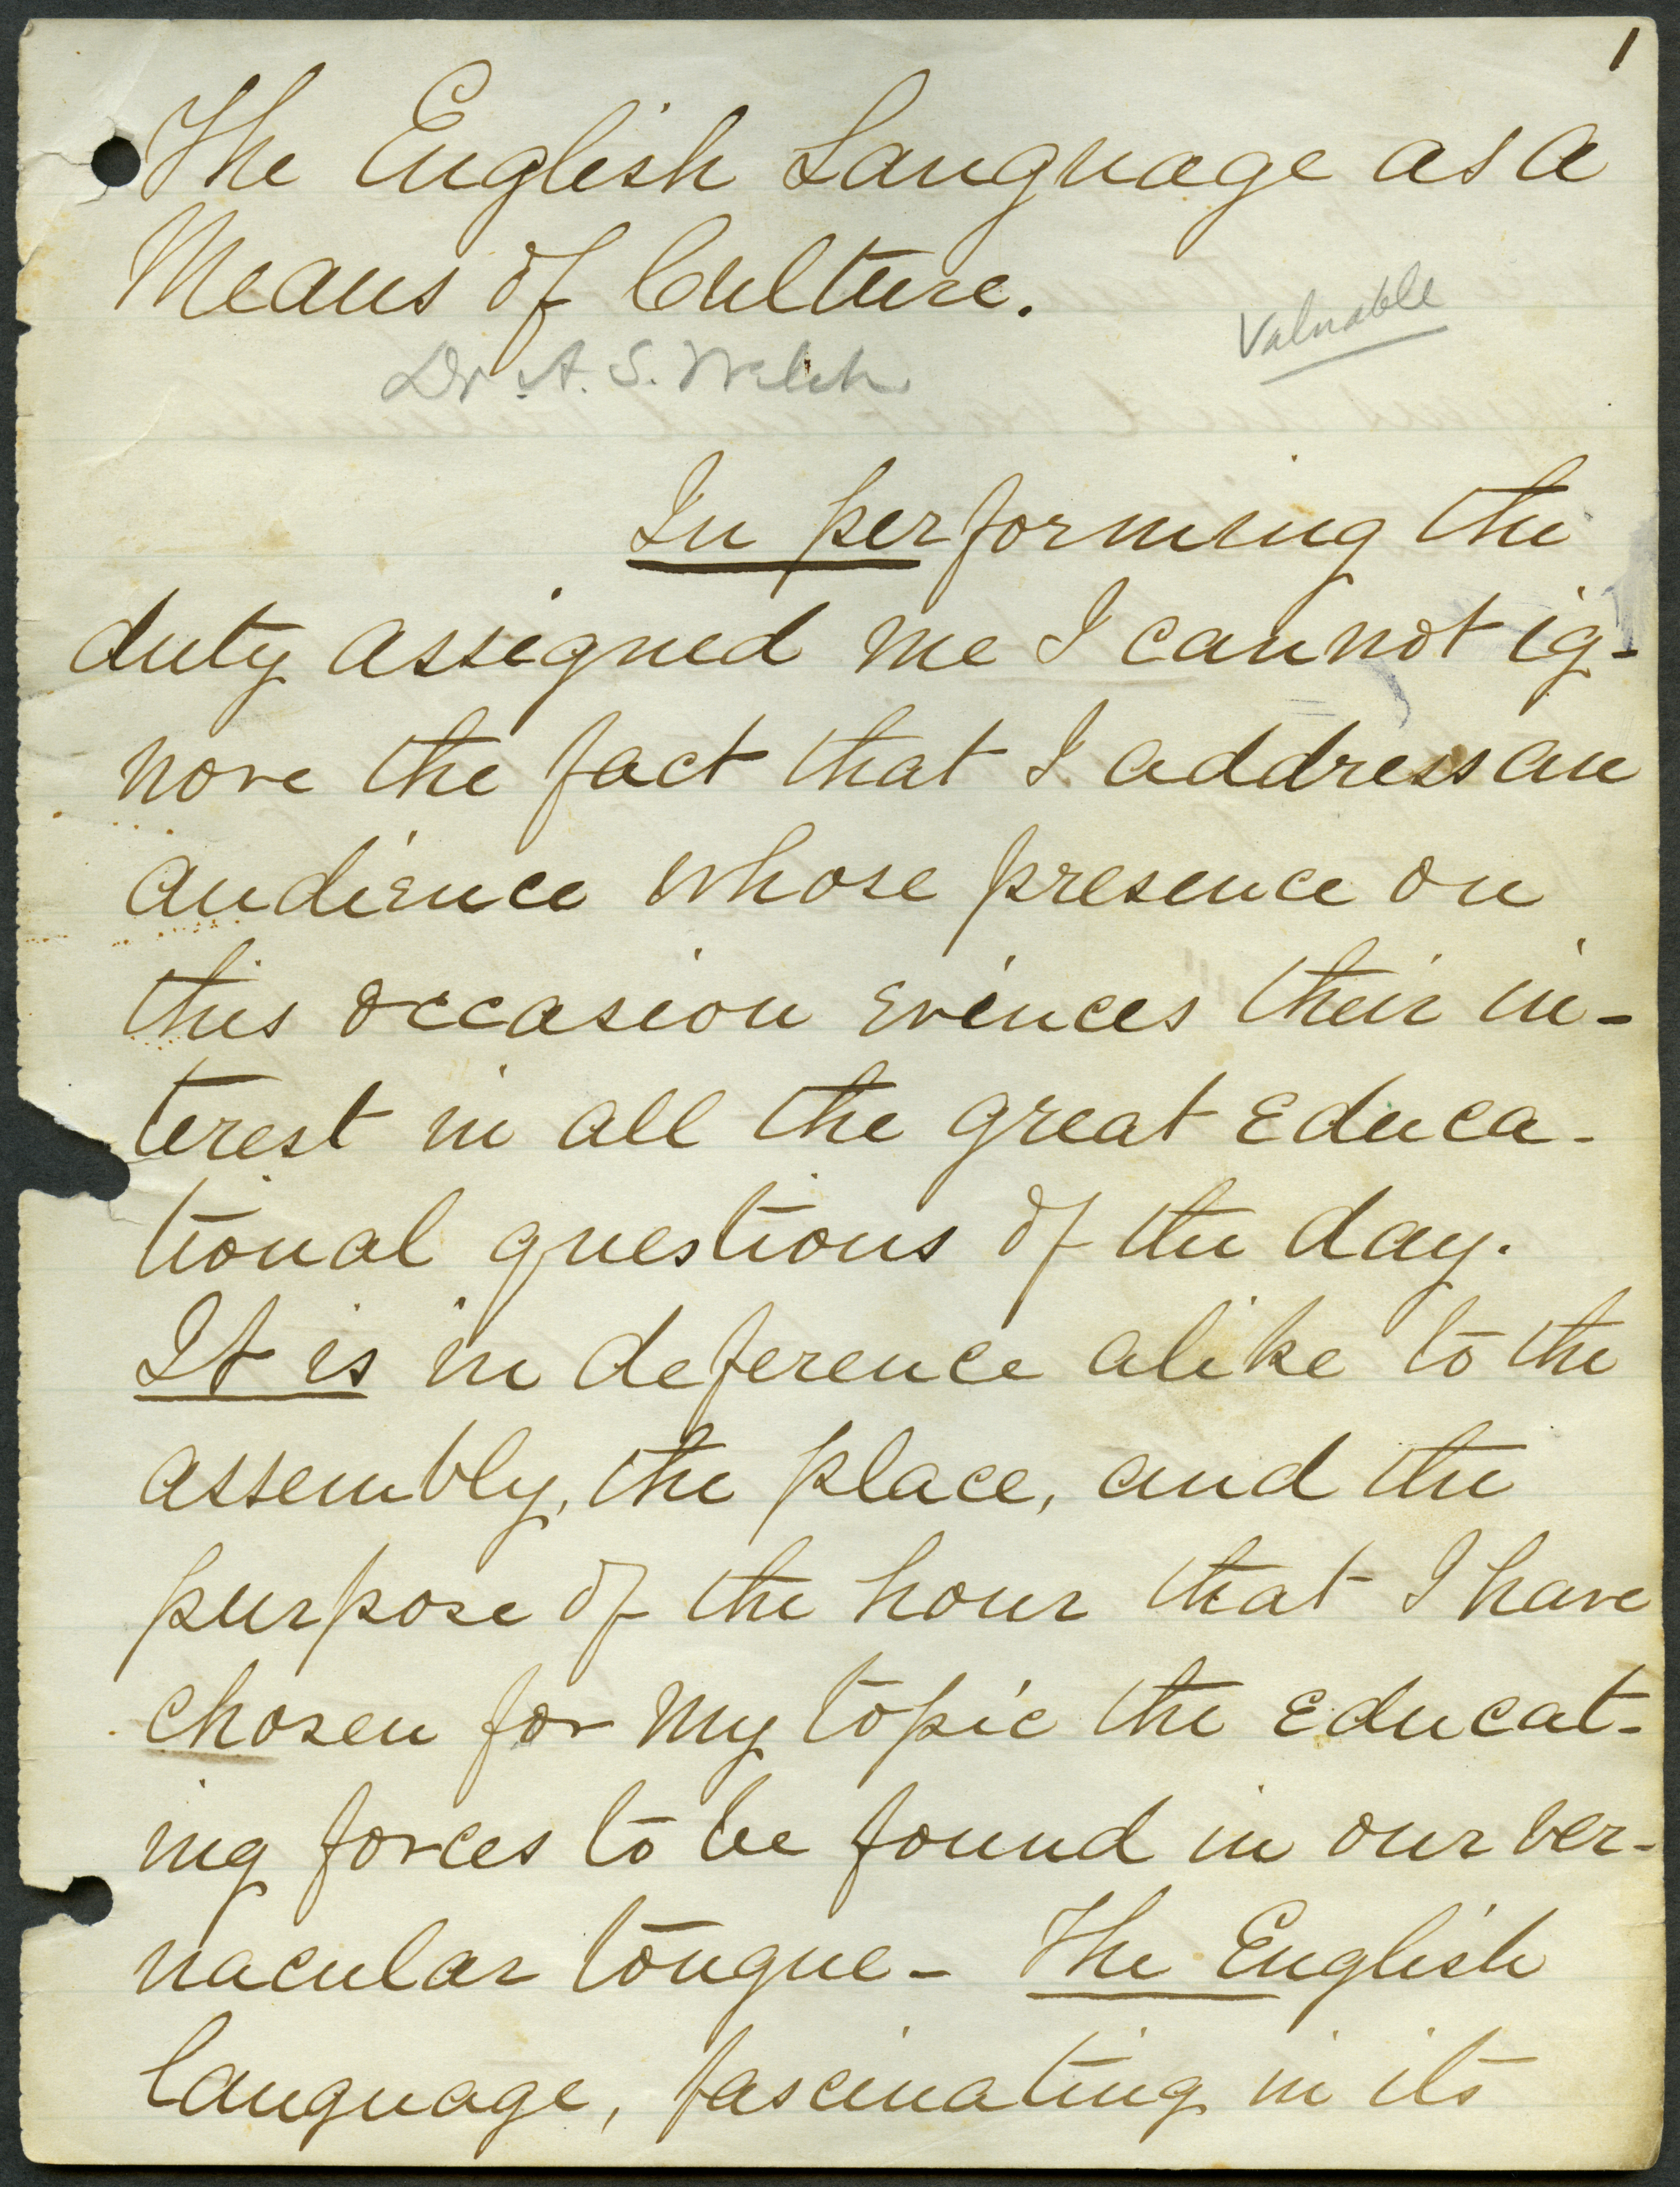 1
The English Language as a
Means of Culture.
Valuable
Dr. A. S. Welch
In performing the
duty assigned me I cannot ig-
nore the fact that I address an
audience whose presence on
this occasion evinces their in-
terest in all the great educa-
tional questions of the day.
It is in deference alike to the
assembly, the place, and the
purpose of the hour that I have
chosen for my topic the educat-
ing forces to be found in our ver-
nacular tongue - The English
language, fascinating in its